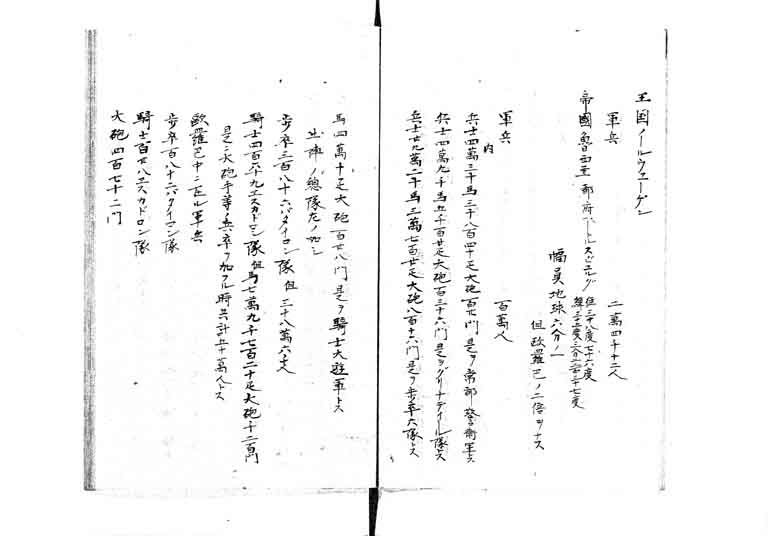 王国ノールウエーゲン
軍兵 二萬四千十二人
帝國魯西亜 都府ペートルスビュルグ
幅員地球六分ノ一
但歐羅巴ノ二倍ヲナス
軍兵 百萬人
内
兵士四萬三千馬三千八百四十疋大砲百廿八門 是ヲ常部警衛軍トス
兵士四萬九千馬五千百廿疋大砲百三十六門是ヲグリナデイル隊トス
兵士廿九萬二千馬三萬七百廿疋大砲八百十六門是ヲ歩卒六隊トス
馬四萬十疋大砲百廿八門 是ヲ騎士大遊軍トス
出陣ノ総隊左ノ如シ
歩卒三百八十六バタイロン隊 但 三十八萬六千人
騎士四百六十九エスカドロン隊但馬七萬九千七百二十疋大砲千二百門
是ニ大砲手等ノ兵卒ヲ加フル時共計五十萬人トス
歐羅巴中ニ在ル軍兵
歩卒百八十六バタイロン隊
騎士百廿八エスカドロン隊
大砲四百七十二門